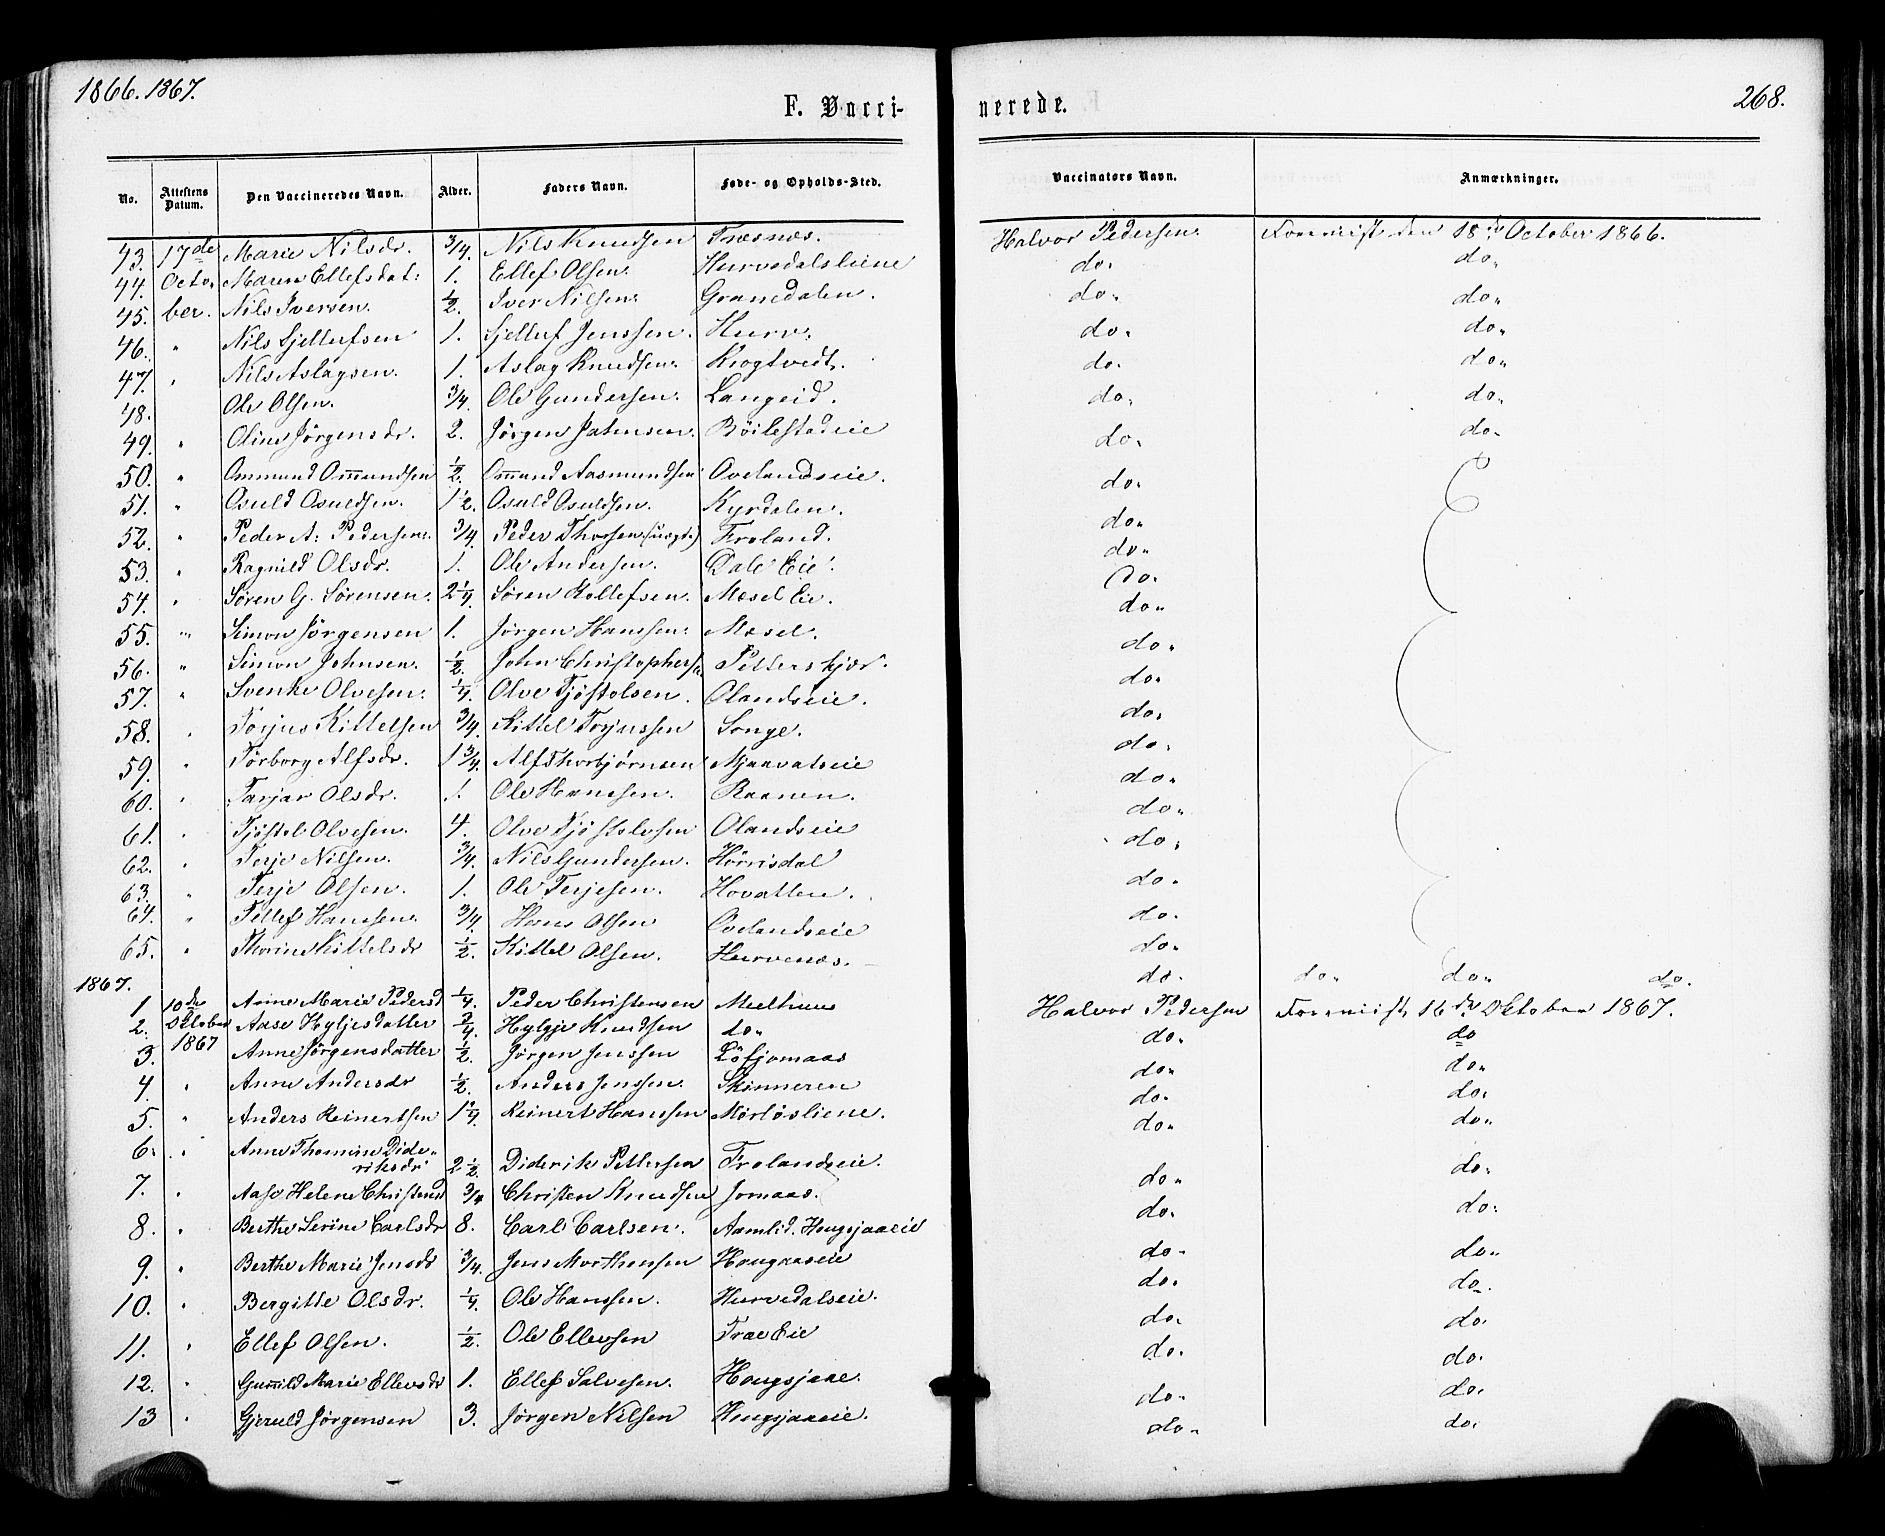 1866. 1867.
F. Vacci-
nerede.
268.
No. Attestens Datum. Den Vaccineredes Navn. Alder. Faders Navn. Føde- og Opholds-Sted. Vaccinators Navn. Anmærkninger.
43. 17de Marie Nilsdr. 3/4 Nils Knudsen Træsnæs. Halvor Pedersen Forevist den 18de October 1866.
44. Octo Maren Ellefsdat: 1. Ellef Olsen. Hurvedalsleiene do. do.
45. ber. Nils Iversen. 1/2. Iver Nilsen. Granedalen. do. do.
46. " Nils Gjellufsen 1. Gjelluf Jenssen. Hurv. do. do.
47. " Nils Aslagsen. 1. Aslag Knudsen. Krogtvedt. do. do.
48. Ole Olsen. 3/4. Ole Gundersen. Langeid. do. do.
49. " Oline Jørgensdr. 2. Jørgen Jahensen. Böilestadeie do. do.
50. " Ommund Ommundsen 1/2. Ommund Aasmundsen Ovelandseie. do.
51. " Osuld Osuldsen. 1 1/2. Osuld Osuldsen. Kyrdalen. do.
52. " Peder A: Pedersen. 3/4. Peder Thorsen (uægte) Froland. do.
53. " Ragnild Olsdr. 1. Ole Andersen. Dale Eie. do.
54. " Søren G. Sørensen. 2 1/4. Søren Rollefsen. Mæsel Eie. do.
55. " Simon Jørgensen 1. Jørgen Hanssen. Mæsel. do.
56. " Simon Johnsen. 1/2. John Christophers Petterskjær. do.
57. " Svenke Olvesen. 1/4. Olve Tjøstolsen. Olandseie. do.
58. " Torjus Kittelsen 3/4. Kittel Torjussen Songe. do.
59. " Torborg Alfsdr. 1 3/4. Alf Thorbjørnsen Mjaavatseie do.
60. " Tarjar Olsdr. 1. Ole Hanssen. Raanen. do.
61. " Tjøstel Olvesen. 4. Olve Tjøstolvsen Olandseie do.
62. " Terje Nilsen. 3/4. Nils Gundersen. Hørrisdal do.
63. " Terje Olsen. 1. Ole Terjesen. Hovatten. do.
64. " Tellef Hanssen. 3/4. Hans Olsen Ovelandseie do.
65. " Thorine Kittelsdr 1/2. Kittel Olsen. Hurvenæs. do.
1867. do. do. do. do.
1 10de Anne Marie Pedersd 1/4. Peder Christensen Mælhuus Halvor Pedersen Forevist 16de Oktober 1867.
2. Oktober Aase Hyljesdatter 3/4. Hylgje Knudsen do. do. do
3. 1867 Anne Jørgensdatter 1/2. Jørgen Jenssen Løfjomaas do. do.
4. " Anne Andersdr 1/2. Anders Jenssen. Skinneren do. do.
5. " Anders Reinertsen 1 1/4. Reinert Hanssen Mørløsliene. do. do.
6. " Anne Thomine Dide-
riksdr 2 1/2. Diderik Pettersen Frolandseie. do. do.
7. " Aase Helene Christensd 3/4 Christen Knudsen Jomaas. do. do.
8. " Berthe Serine Carlsdr 8. Carl Carlsen. Aamlid. Hougsjaaeie do. do.
9. " Berthe Marie Jensdr 3/4. Jens Morthensen Hougaaseie do. do.
10. " Bergitte Olsdr. 1/4. Ole Hanssen. Hurvedalseie. do. do.
11. " Ellef Olsen. 1/2. Ole Ellevsen Trae Eie do. do.
12. " Gunnild Marie Ellevsdr 1. Ellef Salvesen. Hougsjaae. do. do.
13 " Gjeruld Jørgensen 3. Jørgen Nilsen Hougsjaaeie. do. do.